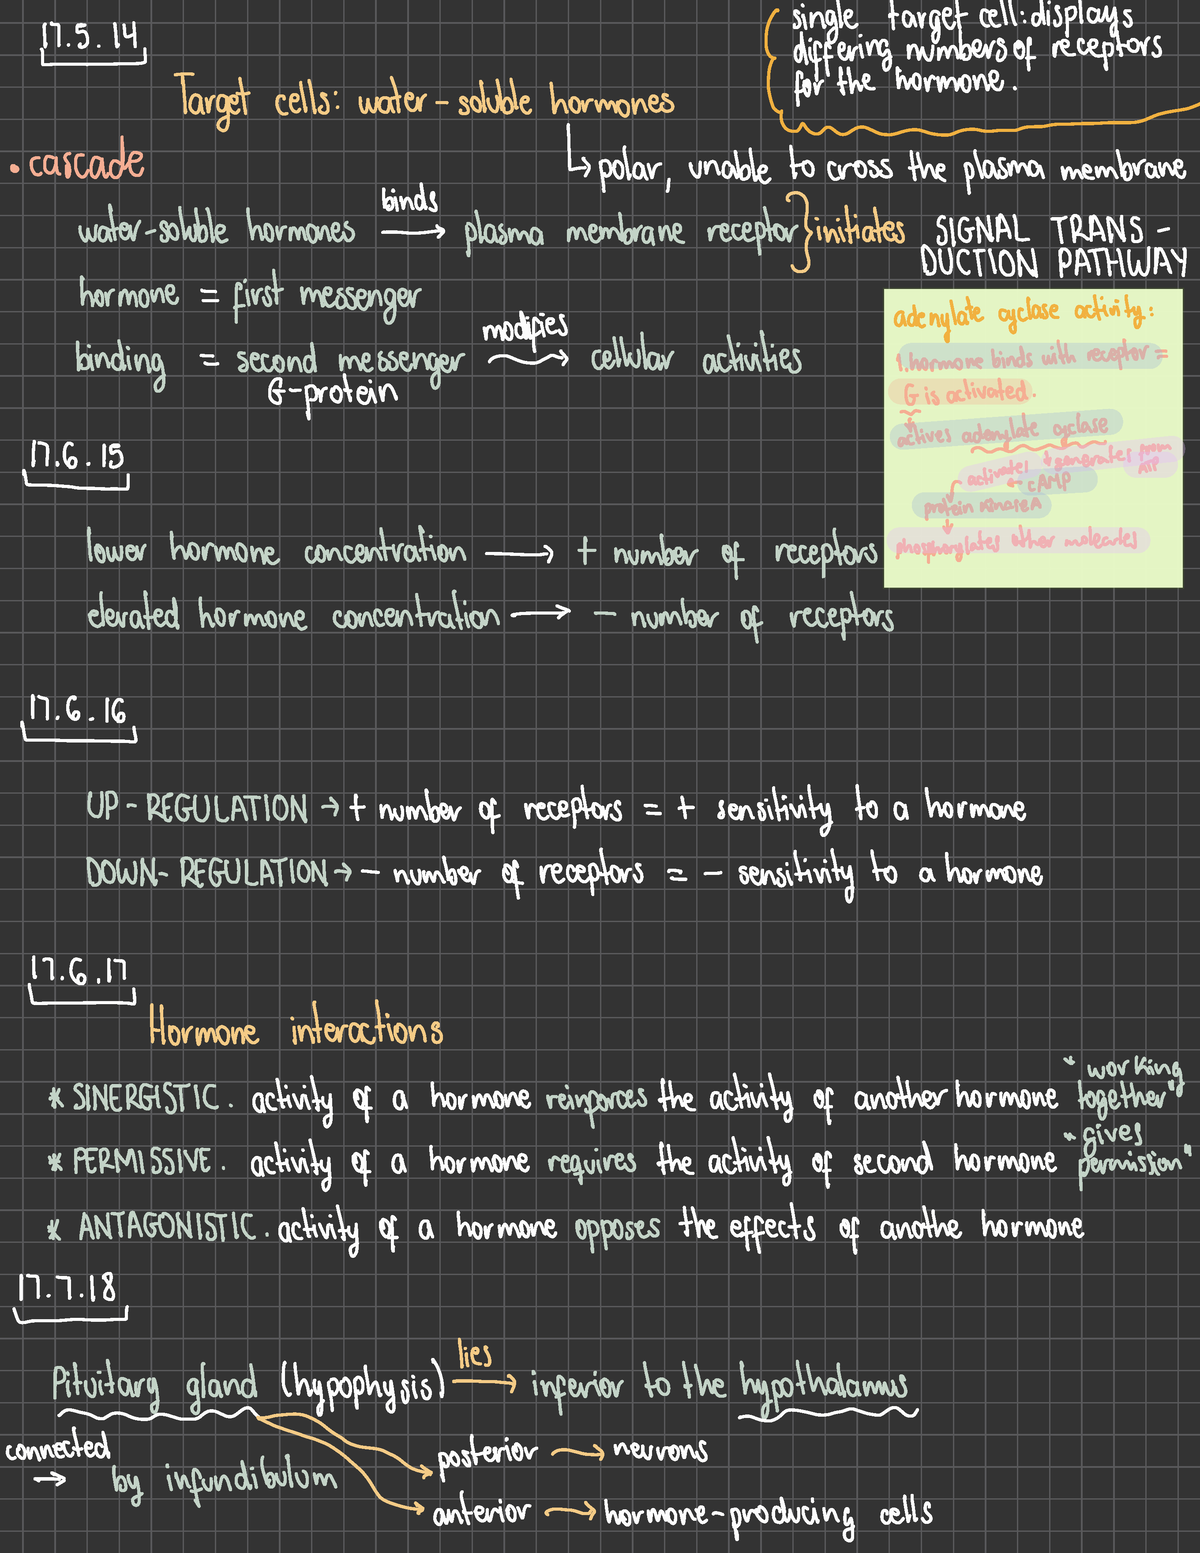 single target cell: displays
differing numbers of receptors
for the hormone.
17.5.14
Target cells: water-soluble hormones
↳ polar, unable to cross the plasma membrane
• cascade
water-soluble hormones binds → plasma membrane receptor } initiates SIGNAL TRANS-
DUCTION PATHWAY
hormone = first messenger
binding = second messenger modifies → cellular activities
G-protein
adenylate cyclase activity:
1. hormone binds with receptor =
G is activated.
actives adenylate cyclase
activates ← cAMP ↓ generates from ATP
protein kinase A
phosphorylates other molecules
17.6.15
lower hormone concentration → + number of receptors
elevated hormone concentration → - number of receptors
17.6.16
UP-REGULATION → + number of receptors = + sensitivity to a hormone
DOWN-REGULATION → - number of receptors = - sensitivity to a hormone
17.6.17
Hormone interactions
* SINERGISTIC. activity of a hormone reinforces the activity of another hormone "working together"
* PERMISSIVE. activity of a hormone requires the activity of second hormone "gives permission"
* ANTAGONISTIC. activity of a hormone opposes the effects of anothe hormone
17.7.18
Pituitary gland (hypophysis) lies → inferior to the hypothalamus
connected → by infundibulum
posterior → neurons
anterior → hormone-producing cells